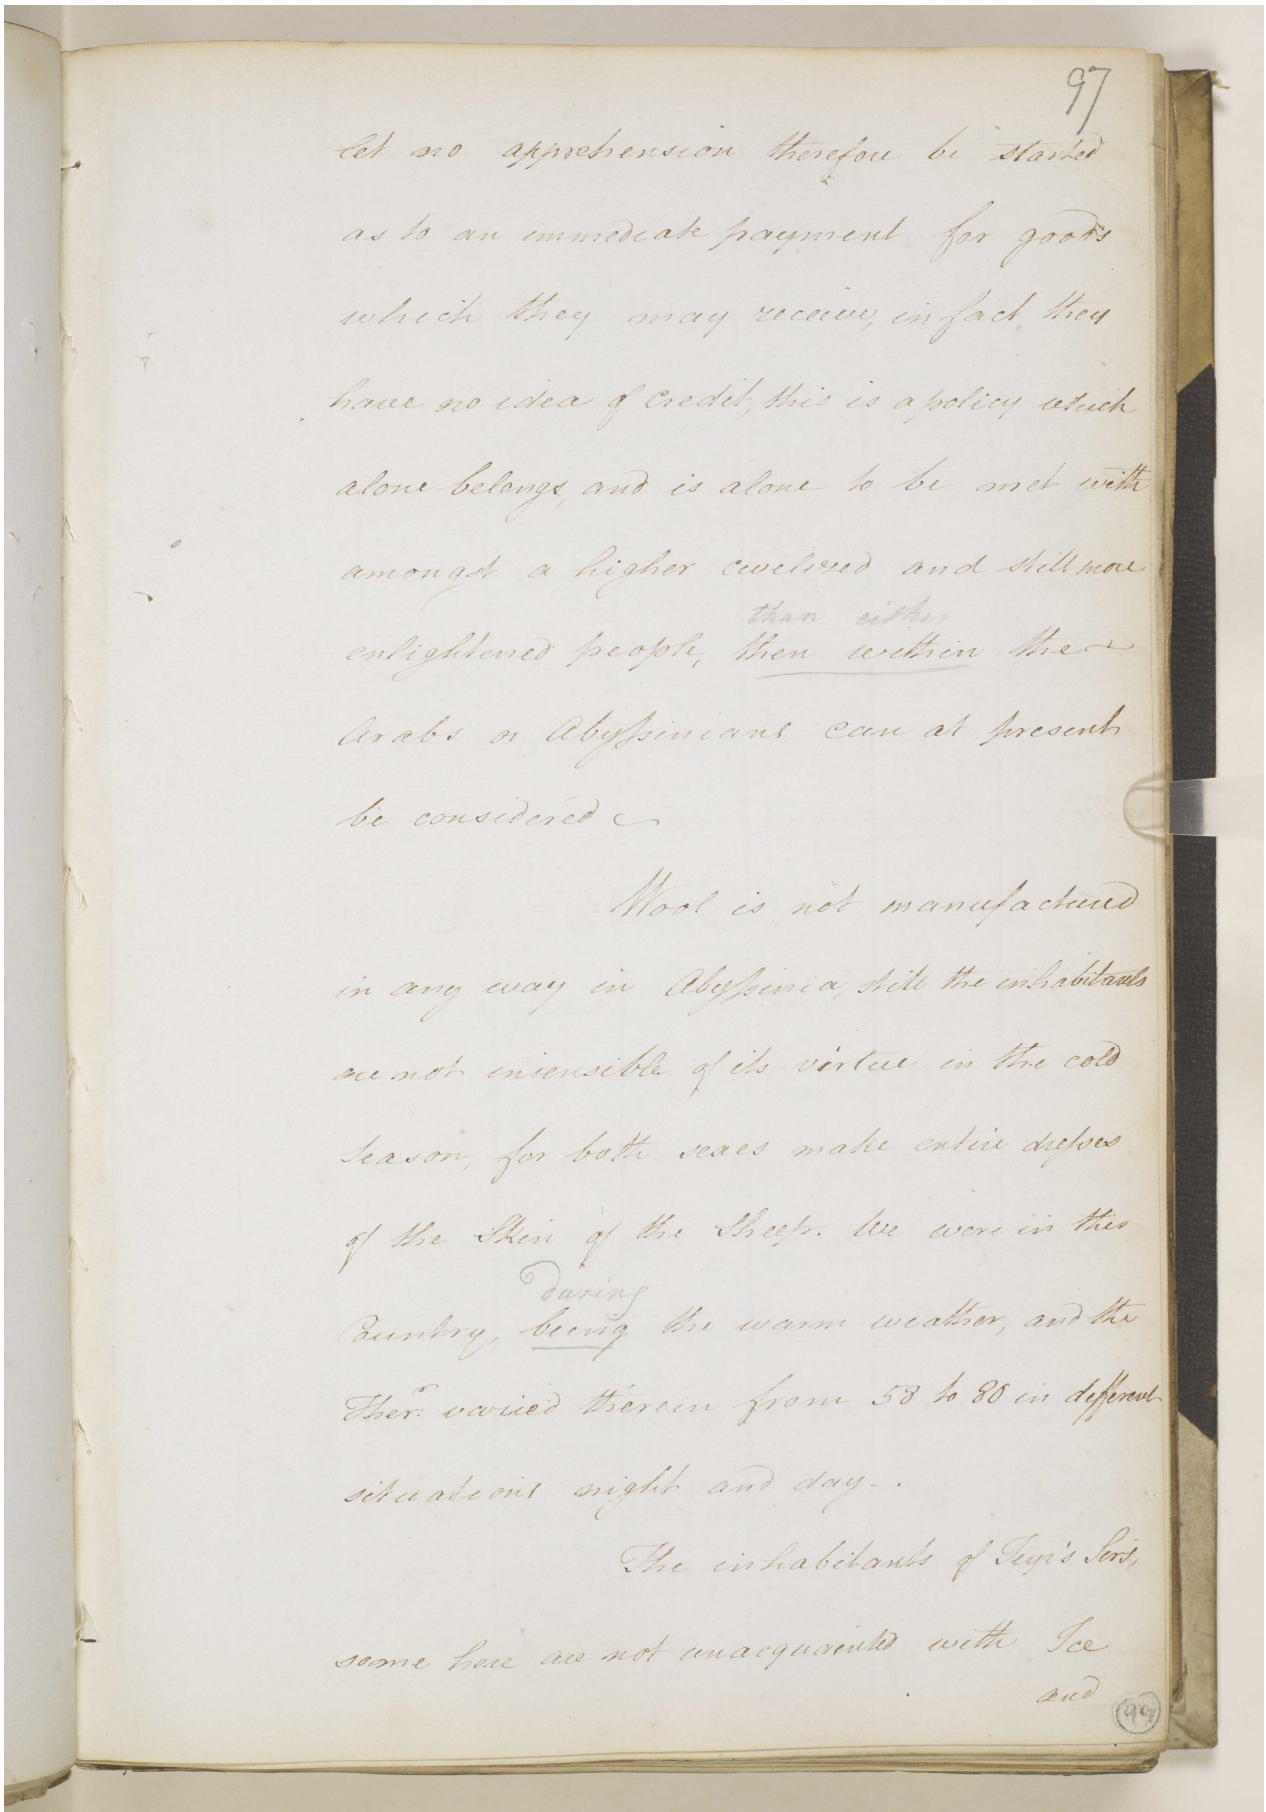 97
let no apprehension therefore be started
as to an immediate payment for goods
which they may receive, in fact they
have no idea of credit, this is a policy which
alone belongs, and is alone to be met with
amongst a higher civelized and still more
than either
enlightened people, then within the
Arabs or Abyssinians can at present
be considered
Wool is not manufactured
in any way in Abyssinia, still the inhabitants
are not insensible of its virtue in the cold
season, for both sexes make entire dresses
of the Skin of the Sheep. We were in this
during
Country, being the warm weather, and the
Ther. varied therein from 58 to 80 in different
situations night and day.
The inhabitants of
some here are not unacquainted with Ice
and